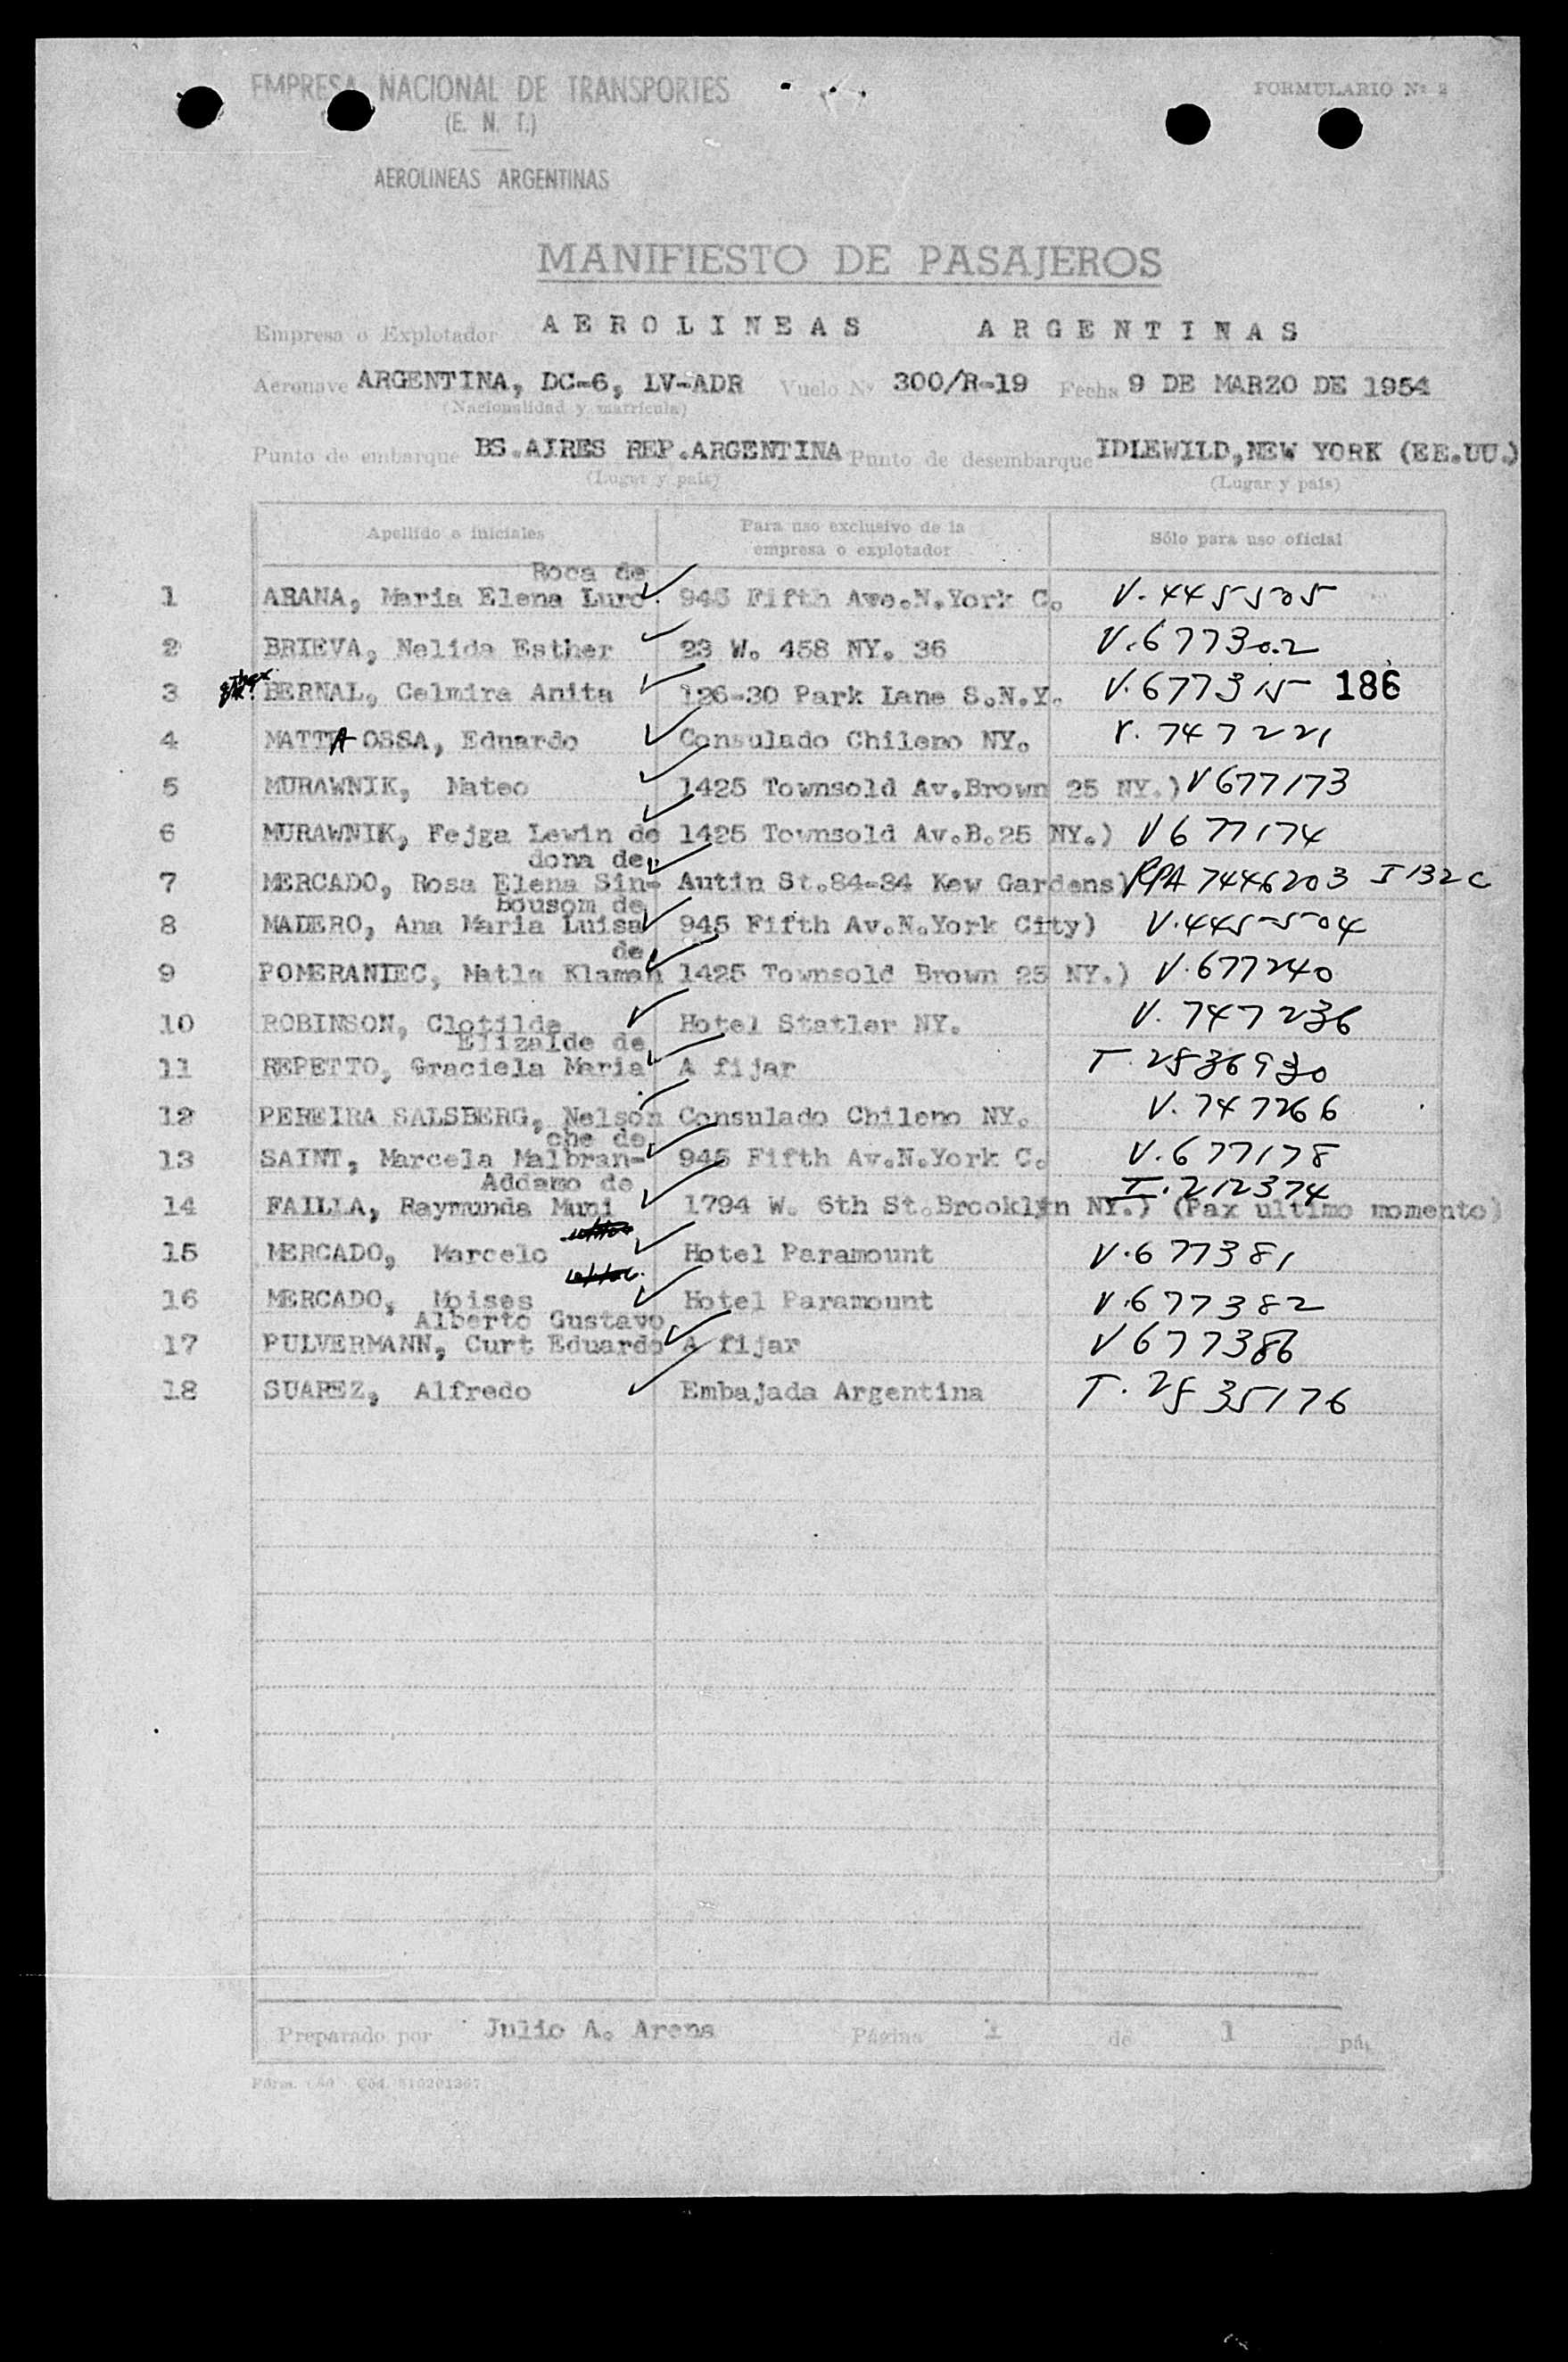 EMPRESA NACIONAL DE TRANSPORTES
FORMULARIO Nº 2
(E. N. T.)
AEROLINEAS ARGENTINAS
MANIFIESTO DE PASAJEROS
Empresa o Explotador AEROLINEAS ARGENTINAS
Aeronave ARGENTINA, DC-6, LV-ADR Vuelo Nº 300/R-19 Fecha 9 DE MARZO DE 1954
(Nacionalidad y matrícula)
Punto de embarque BS.AIRES REP.ARGENTINA Punto de desembarque IDLEWILD,NEW YORK (EE.UU.)
(Lugar y país) (Lugar y país)
Apellido e iniciales Para uso exclusivo de la empresa o explotador Sólo para uso oficial
Roca de
1 ARANA, Maria Elena Luro 945 Fifth Ave.N.York C. V. 445505
2 BRIEVA, Nelida Esther 23 W. 458 NY. 36 V.677302
3 BERNAL, Celmira Anita 126-30 Park Lane S.N.Y. V.677315 186
4 MATTA OSSA, Eduardo Consulado Chileno NY. V. 747221
5 MURAWNIK, Mateo 1425 Townsold Av.Brown 25 NY.) V 677173
6 MURAWNIK, Fejga Lewin de 1425 Townsold Av.B.25 NY.) V 677174
dona de
7 MERCADO, Rosa Elena Sin- Autin St.84-84 Kew Gardens) RPA 7446203 I 132 C
Bousom de
8 MADERO, Ana Maria Luisa 945 Fifth Av.N.York City) V.445504
de
9 POMERANIEC, Matla Klaman 1425 Townsold Brown 25 NY.) V.677240
10 ROBINSON, Clotilde Hotel Statler NY. V. 747236
Elizalde de
11 REPETTO, Graciela Maria A fijar T. 2536930
12 PEREIRA SALSBERG, Nelson Consulado Chileno NY. V. 747266
che de
13 SAINT, Marcela Malbran- 945 Fifth Av.N.York C. V.677178
Addamo de I.212374
14 FAILLA, Raymunda Muni 1794 W. 6th St.Brooklyn NY.) (Pax ultimo momento)
15 MERCADO, Marcelo Hotel Paramount V.677381
16 MERCADO, Moises Hotel Paramount V.677382
Alberto Gustavo
17 PULVERMANN, Curt Eduardo A fijar V 677386
18 SUAREZ, Alfredo Embajada Argentina T. 2535176
Preparado por Julio A. Arena Página 1 de 1 pá